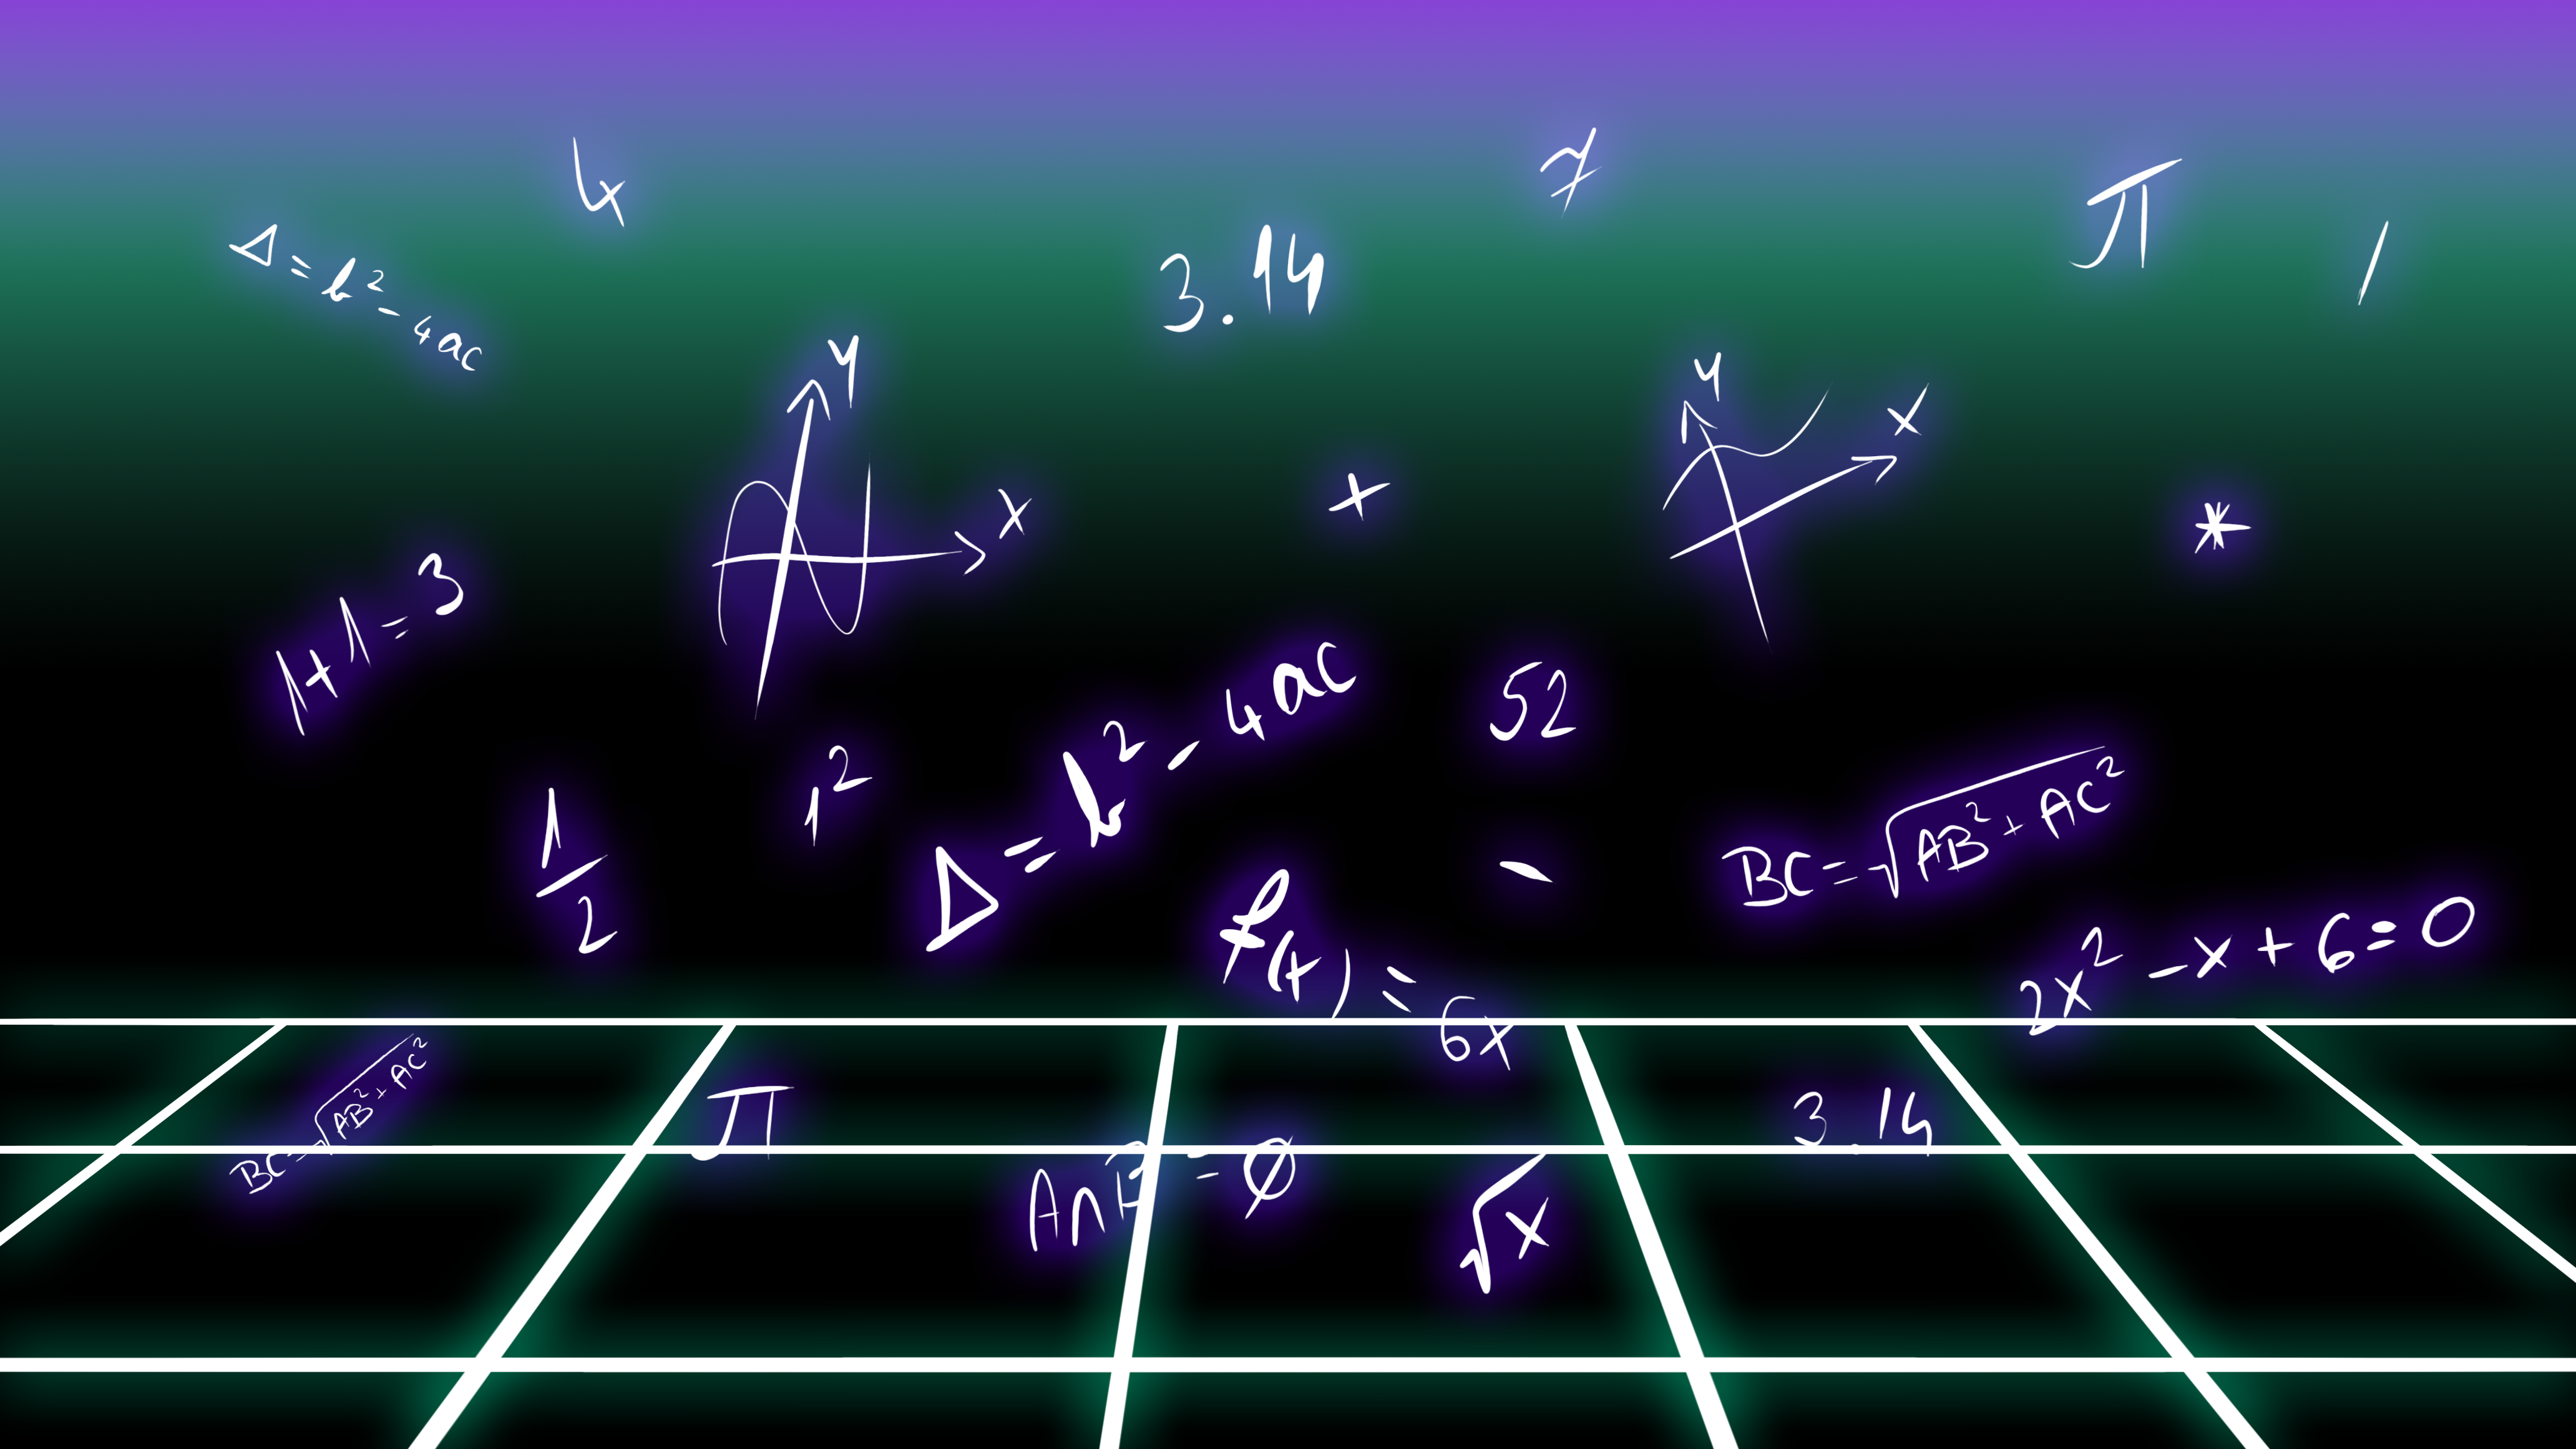 4
7
π
/
Δ = b² - 4ac
3.14
y
x
y
x
+
*
1+1=3
52
1²
Δ = b² - 4ac
1/2
-
BC = √AB² + AC²
f(x) = 6x
2x² - x + 6 = 0
BC = √AB² + AC²
π
3.14
A∩B = ∅
√x